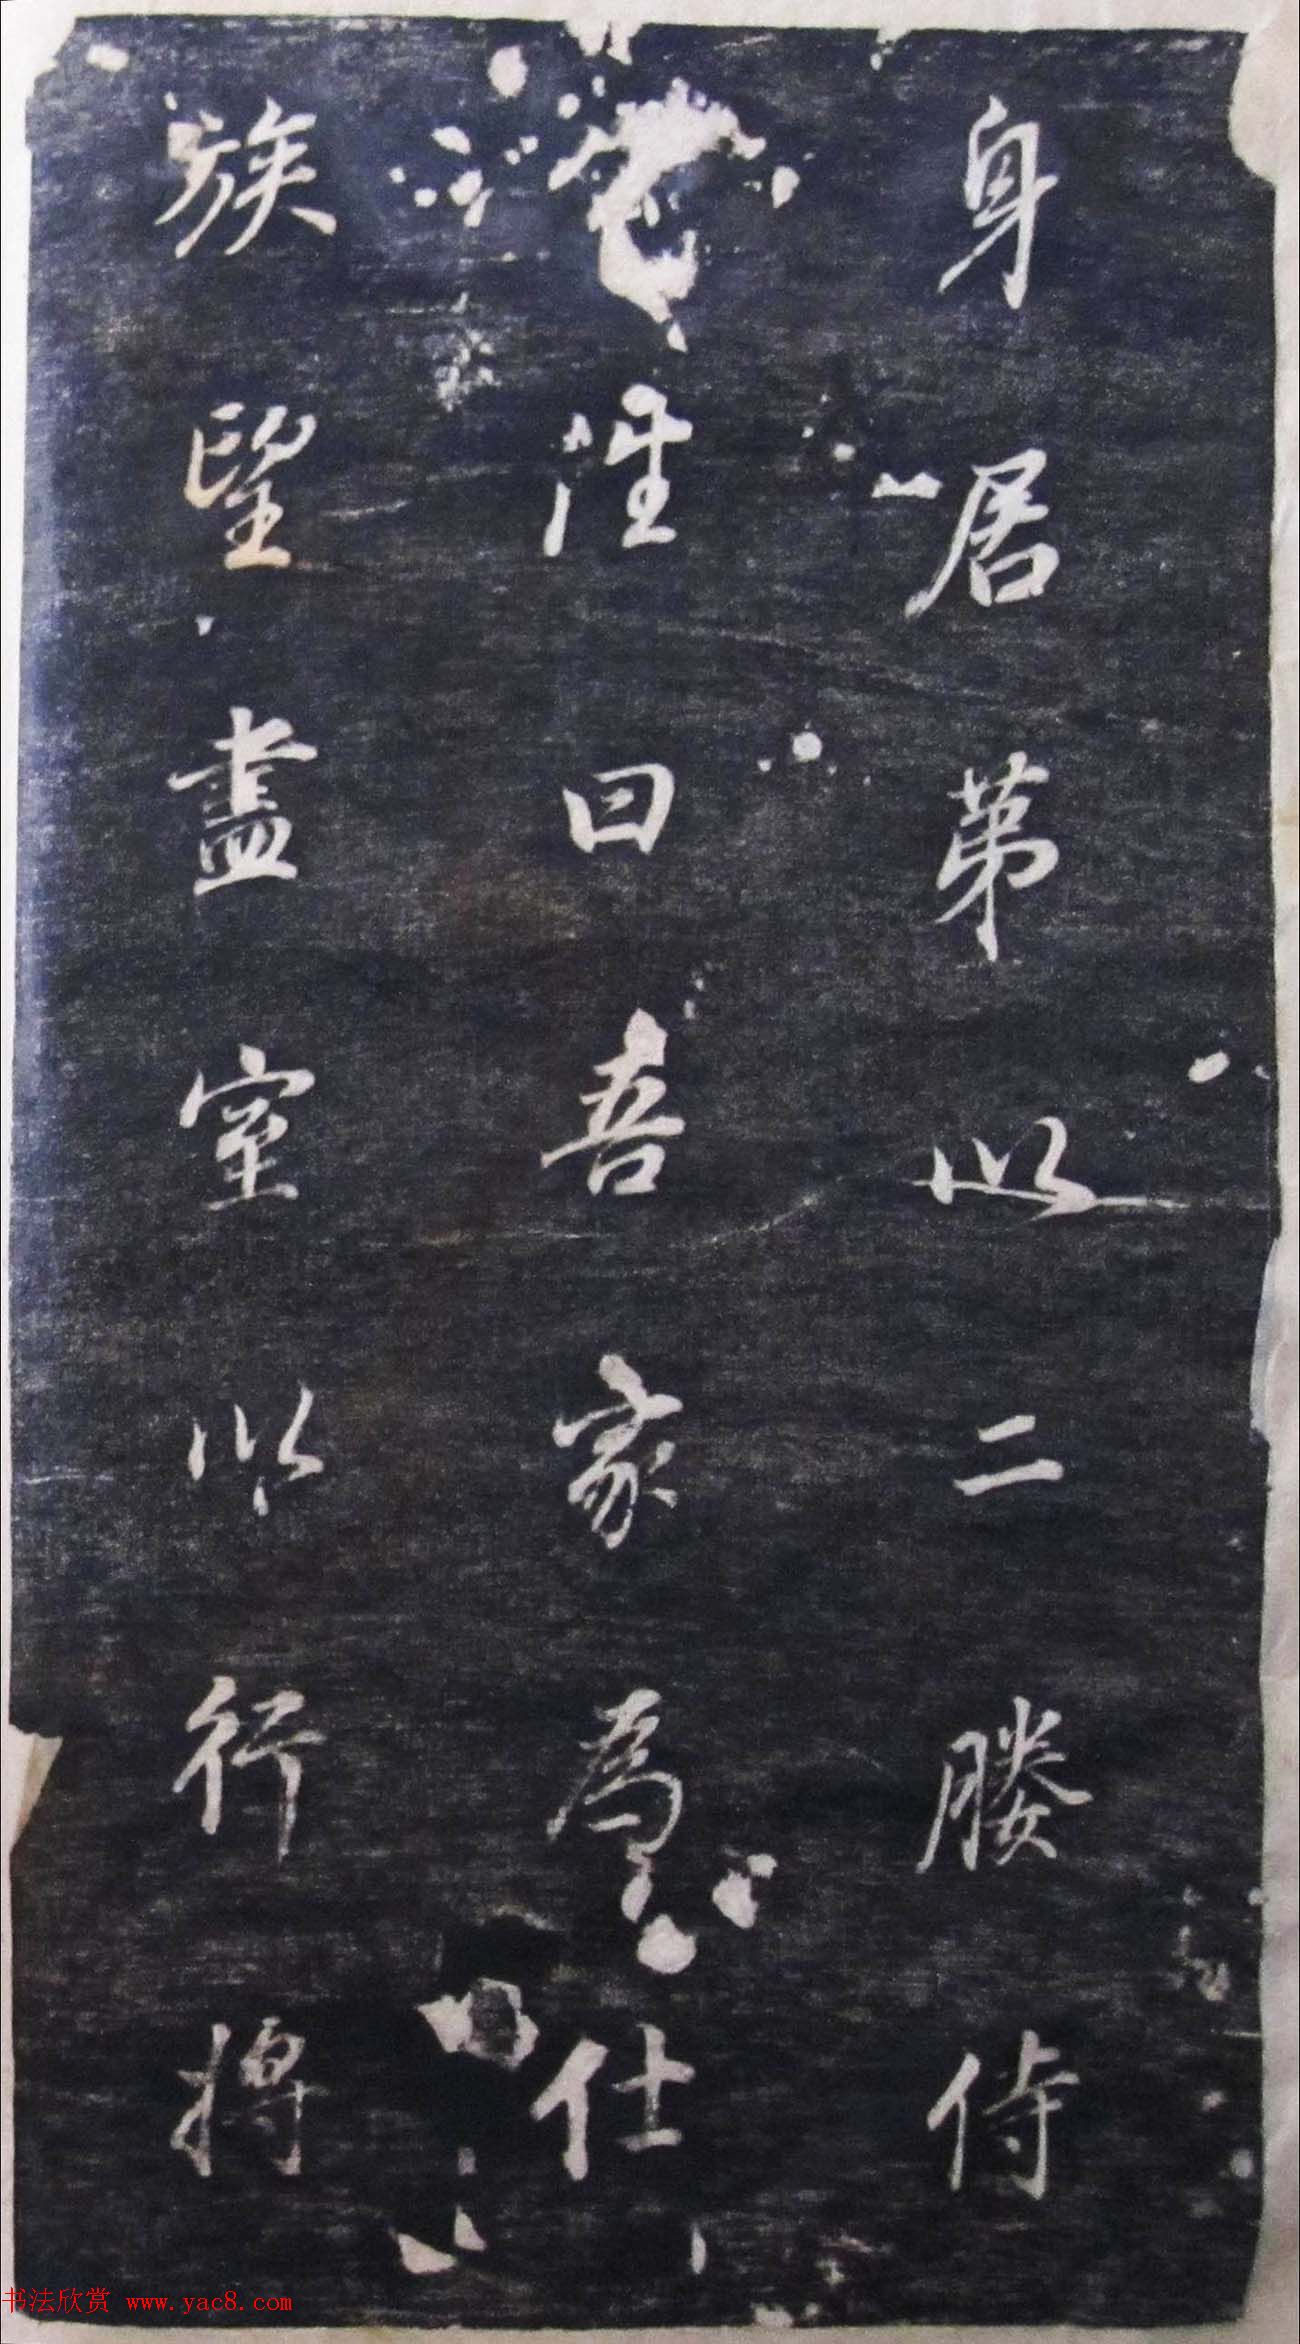 身居第以二媵侍
性曰吾家為仕
族望盡室以行將
书法欣赏 www.yac8.com